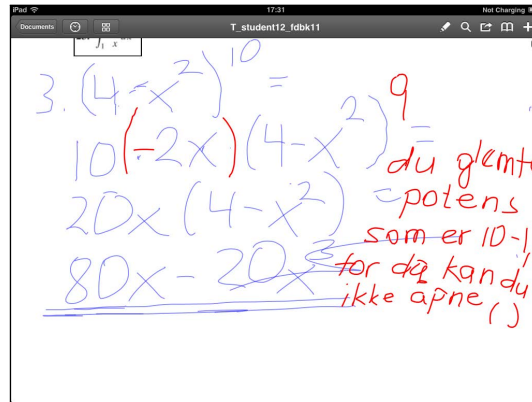 iPad 17:31 Not Charging
Documents T_student12_fdbk11
∫₁ x
3. (4-x²)¹⁰ =
10(-2x)(4-x²)⁹ =
20x(4-x²) =
80x - 20x³
du glemt
potens
som er 10-1
for da kan du
ikke åpne ()